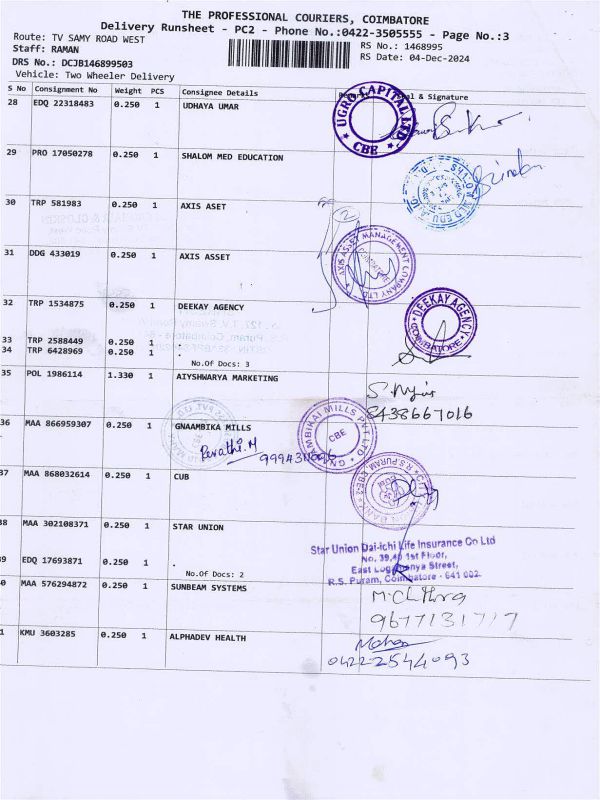 THE PROFESSIONAL COURIERS, COIMBATORE
Delivery Runsheet - PC2 - Phone No.:0422-3505555 - Page No.:3
Route: TV SAMY ROAD WEST
RS No.: 1468995
Staff: RAMAN
RS Date: 04-Dec-2024
DRS No.: DCJB146899503
Vehicle: Two Wheeler Delivery
S No Consignment No Weight PCS Consignee Details & Signature
28 EDQ 22318483 0.250 1 UDHAYA UMAR
UGRO CAPITAL LTD CBE
29 PRO 17050278 0.250 1 SHALOM MED EDUCATION
30 TRP 581983 0.250 1 AXIS ASET
2
31 DDG 433019 0.250 1 AXIS ASSET
AXIS ASSET MANAGEMENT COMPANY LTD COIMBATORE
32 TRP 1534875 0.250 1 DEEKAY AGENCY
DEEKAY AGENCY COIMBATORE
33 TRP 2588449 0.250 1 .
34 TRP 6428969 0.250 1 .
No.Of Docs: 3
35 POL 1986114 1.330 1 AIYSHWARYA MARKETING
8438667016
36 MAA 866959307 0.250 1 GNAAMBIKA MILLS
GNAMBIKAI MILLS PVT LTD CBE
Parathi.M
37 MAA 868032614 0.250 1 CUB
R.S.PURAM,
38 MAA 302108371 0.250 1 STAR UNION
Star Union Dai-ichi Life Insurance Co Ltd
No. 39,40 1st Floor,
39 EDQ 17693871 0.250 1 .
East Street,
No.Of Docs: 2
R.S. Puram, Coimbatore - 641 002.
0 MAA 576294872 0.250 1 SUNBEAM SYSTEMS
M.Chithra
9677131717
1 KMU 3603285 0.250 1 ALPHADEV HEALTH
Mohan
0422-2544093